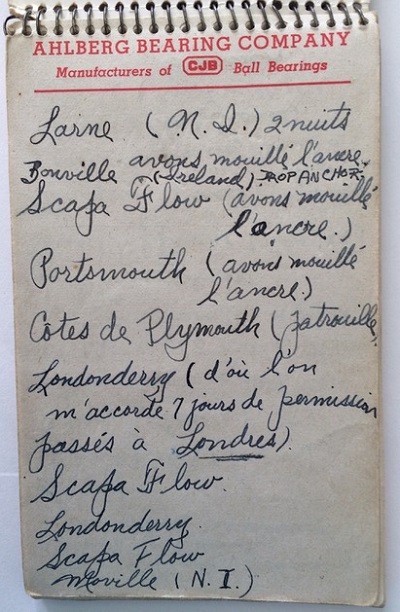 AHLBERG BEARING COMPANY
Manufacturers of CJB Ball Bearings
Larne (N. I.) 2 nuits
avons mouillé l'ancre.
Bonville (Ireland). DROP ANCHOR.
Scapa Flow (avons mouillé
l'ancre.)
Portsmouth (avons mouillé
l'ancre.)
Côtes de Plymouth (patrouille)
Londonderry (d'où l'on
m'accorde 7 jours de permission
passés à Londres).
Scapa Flow.
Londonderry.
Scapa Flow
Moville (N. I.)